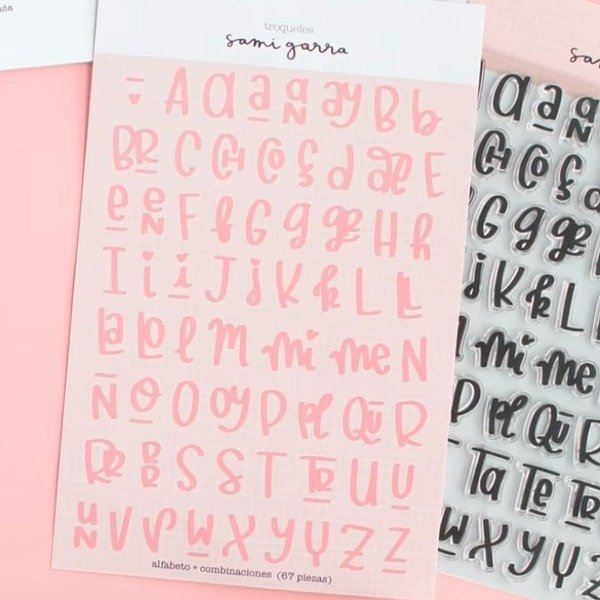 troqueles
sami garra
A a a aN ay B b
BR C CH Co ç d de E
e eN F f G g ge H h
I i i J j K k L LL
la lo l M mi me N
Ñ o O oy P pl Qu R
Re RR S S T Te U u
uN V v W X y Y Z Z
alfabeto + combinaciones (67 piezas)
a a aN
CH Co ç
G g ge
j K k L
mi me
P pl Qu
Ta Te Te
W X y Y